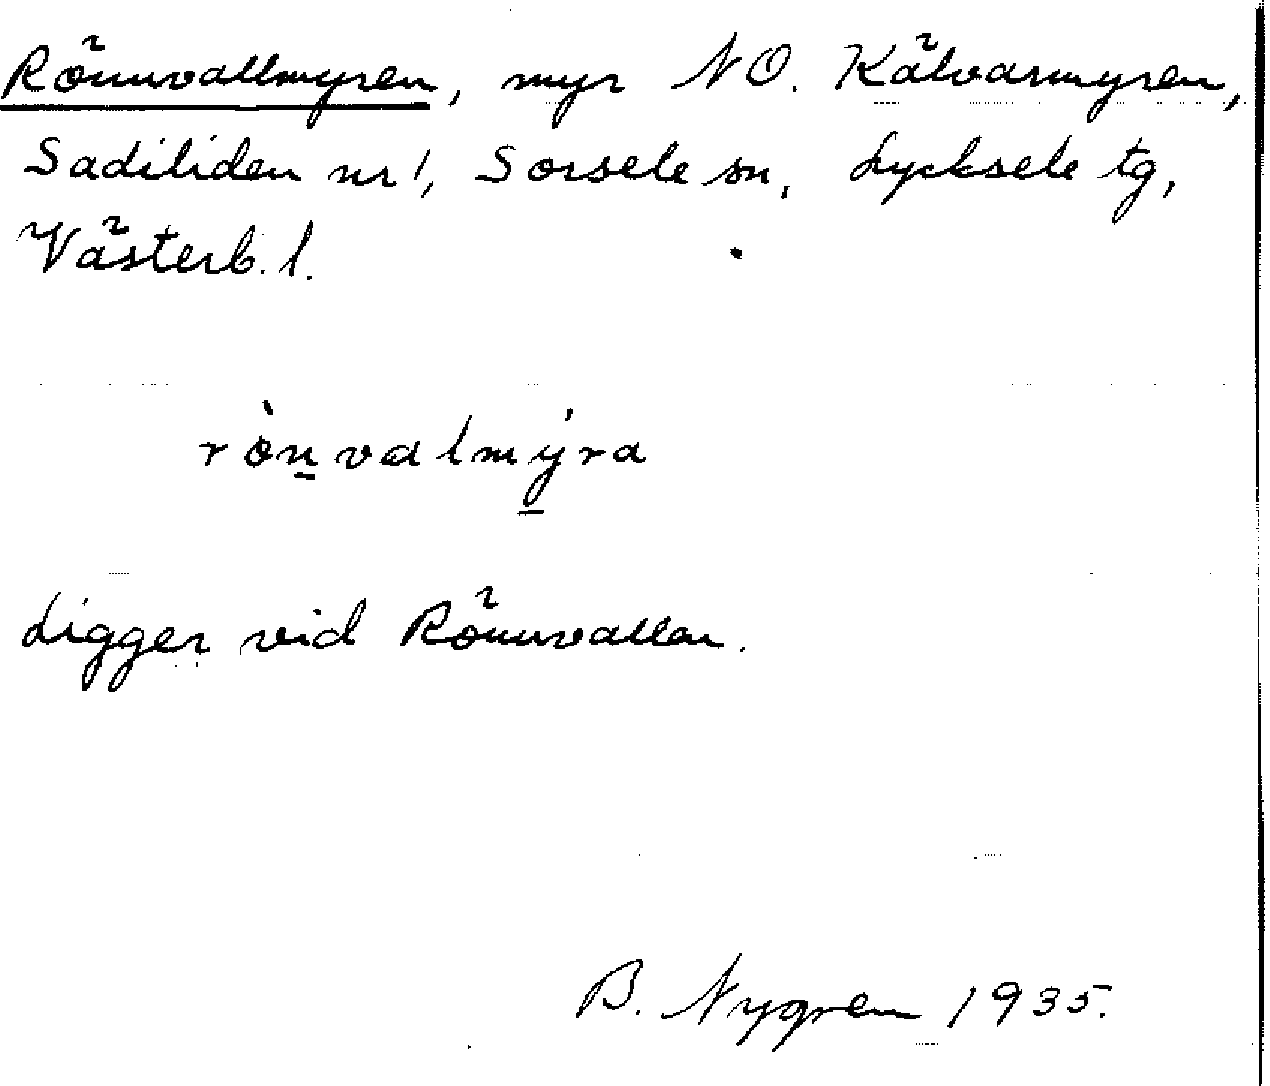 Rönnvallmyren, myr NO. Kälvarmyren,
Sadiliden nr 1, Sorsele sn, Lycksele tg,
Västerb. l.
rònvalmýra
Ligger vid Rönnvallen.
B. Nygren 1935.